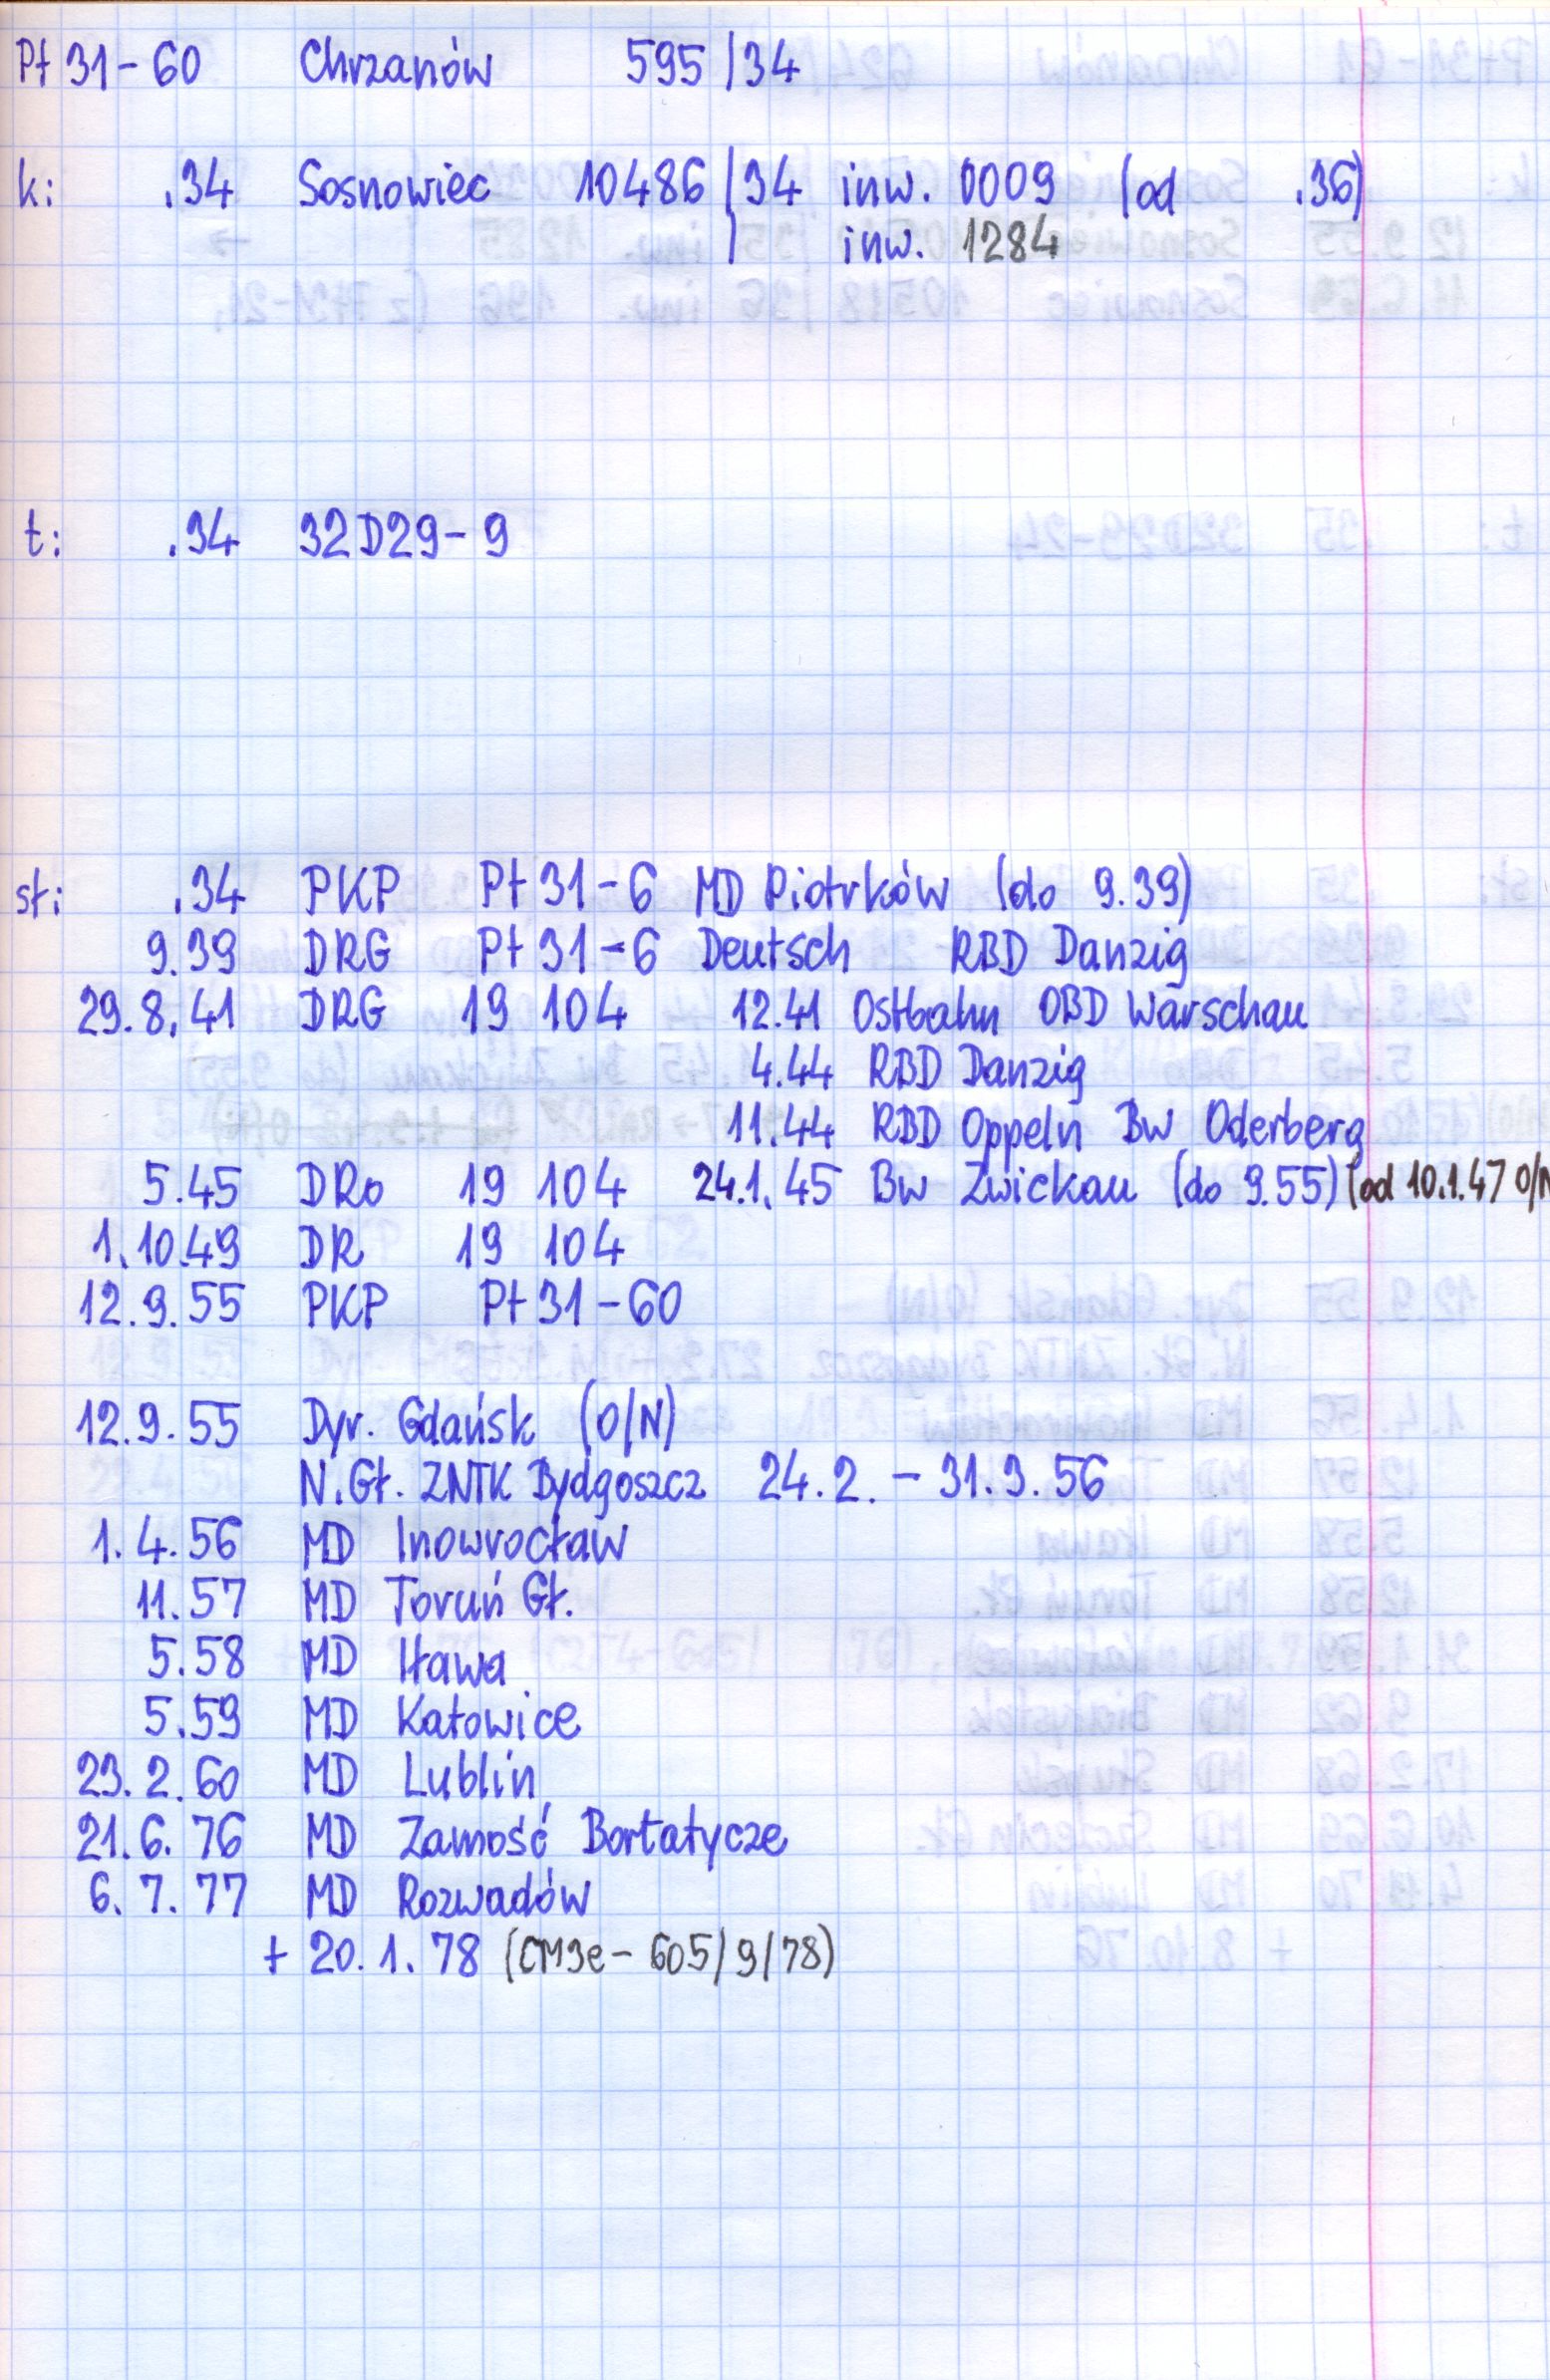 Pt 31-60 Chrzanów 595/34
k: .34 Sosnowiec 10486/34 inw. 0009 (od .36)
/ inw. 1284
t: .34 32D29-9
sł: .34 PKP Pt 31-6 MD Piotrków (do 9.39)
9.39 DRG Pt 31-6 Deutsch RBD Danzig
29.8.41 DRG 19 104 12.41 Ostbahn OBD Warschau
4.44 RBD Danzig
11.44 RBD Oppeln Bw Oderberg
5.45 DRo 19 104 24.1.45 Bw Zwickau (do 9.55) (od 10.1.47 O/N
1.10.49 DR 19 104
12.9.55 PKP Pt 31-60
12.9.55 Dyr. Gdańsk (O/N)
N.Gł. ZNTK Bydgoszcz 24.2. - 31.3.56
1.4.56 MD Inowrocław
11.57 MD Toruń Gł.
5.58 MD Iława
5.59 MD Katowice
23.2.60 MD Lublin
21.6.76 MD Zamość Bortatycze
6.7.77 MD Rozwadów
+ 20.1.78 (CM3e-605/9/78)